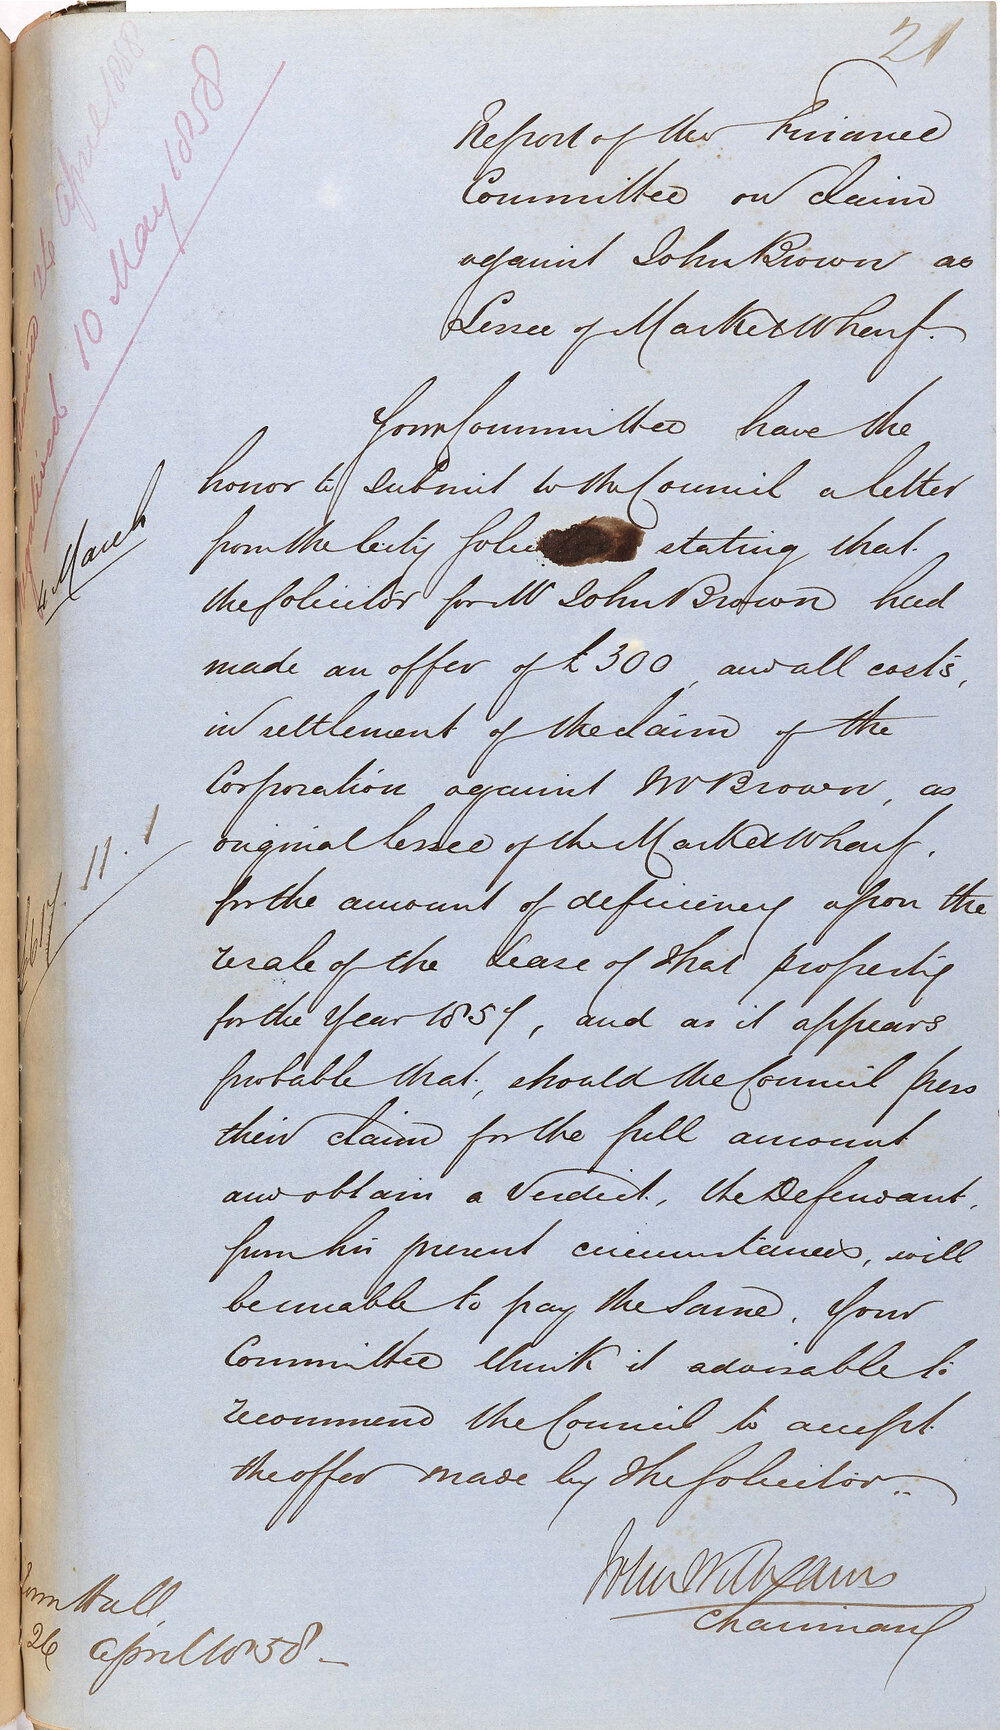 21
26 April 1858
negatived 10 May 1858
Report of the Finance
Committee on claim
against John Brown as
Lessee of Market Wharf.
Your Committee have the
honor to submit to the Council a letter
4 March
from the City Solici stating that
the Solicitor for Mr John Brown had
made an offer of £300, and all costs,
in settlement of the claim of the
Corporation against Mr Brown, as
original Lessee of the Market Wharf,
11.1
for the amount of deficiency upon the
resale of the Lease of that property
for the Year 1857, and as it appears
probable that, should the Council press
their claim for the full amount
and obtain a verdict, the Defendant,
from his present circumstances, will
be unable to pay the same. Your
Committee think it advisable to
recommend the Council to accept
the offer made by the Solicitor..
John Williams
Chairman
Town Hall,
26 April 1858 -